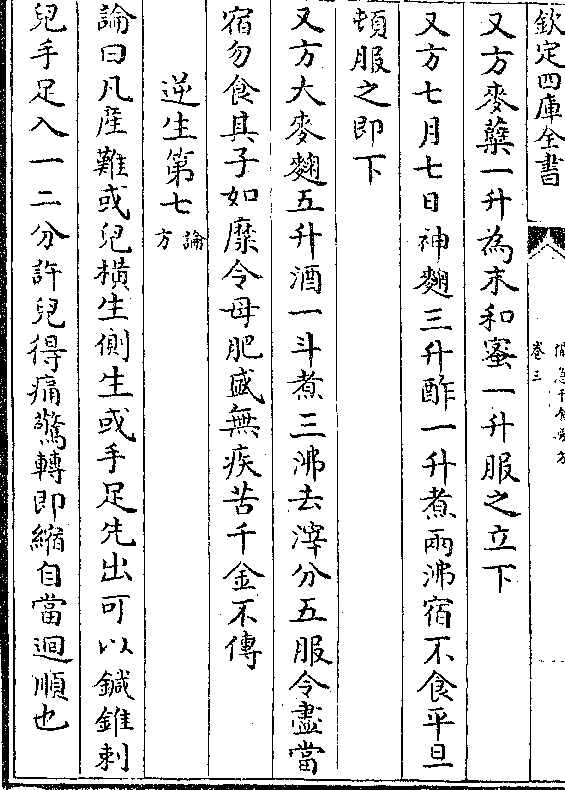 欽定四庫全書
卷三
又方麥蘗一升為末和蜜一升服之立下
又方七月七日神麴三升酢一升煮兩沸宿不食平旦
頓服之即下
又方大麥麴五升酒一斗煮三沸去滓分五服令盡當
宿勿食其子如糜令母肥盛無疾苦千金不傳
逆生第七論方
論曰凡産難或兒橫生側生或手足先出可以鍼錐刺
兒手足入一二分許兒得痛驚轉即縮自當迴順也